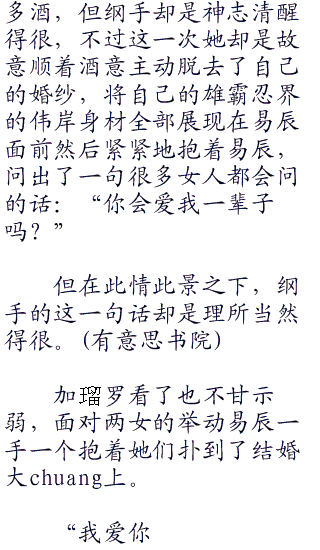 多酒，但纲手却是神志清醒
得很，不过这一次她却是故
意顺着酒意主动脱去了自己
的婚纱，将自己的雄霸忍界
的伟岸身材全部展现在易辰
面前然后紧紧地抱着易辰，
问出了一句很多女人都会问
的话：“你会爱我一辈子
吗？”
但在此情此景之下，纲
手的这一句话却是理所当然
得很。(有意思书院)
加瑠罗看了也不甘示
弱，面对两女的举动易辰一
手一个抱着她们扑到了结婚
大chuang上。
“我爱你